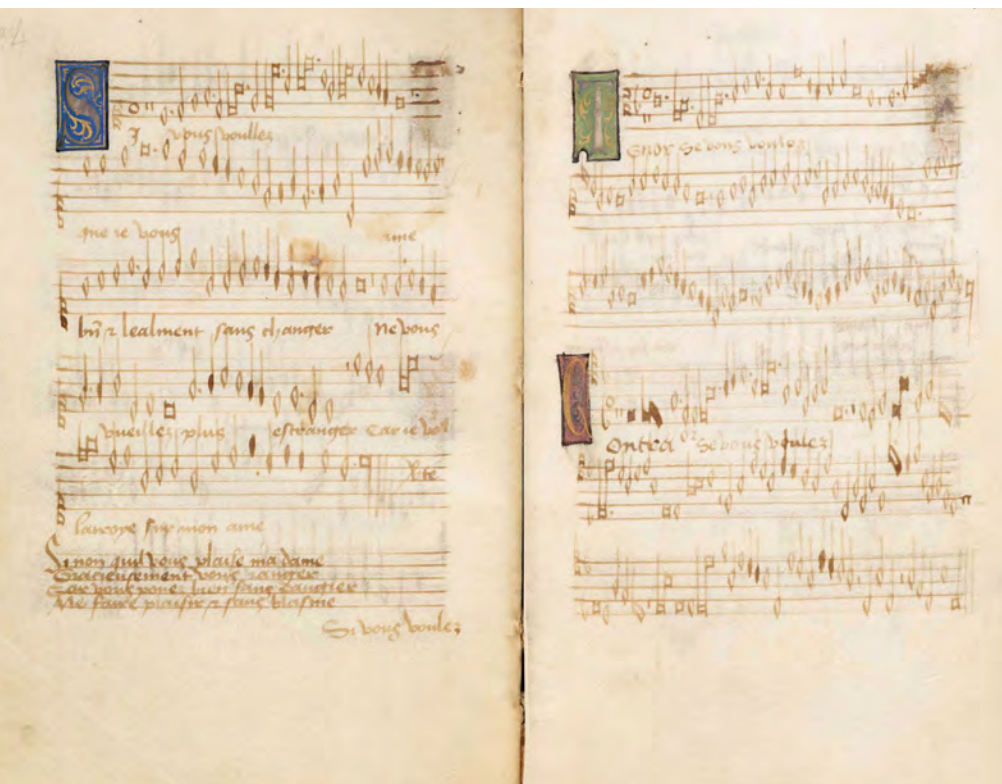 SI vous voullez
que ie vous ame
bñ ⁊ lealment sans changer Ne vous
vueillez plus estranger Car ie
sur mon ame
Si non quil vous plaise ma dame
Gracieusement vous ranger
Car vous poues bien sans dangier
Me faire plaisir ⁊ sans blasme
Si vous voulez
Tenor Se vous voulez
Contra Se vous voulez